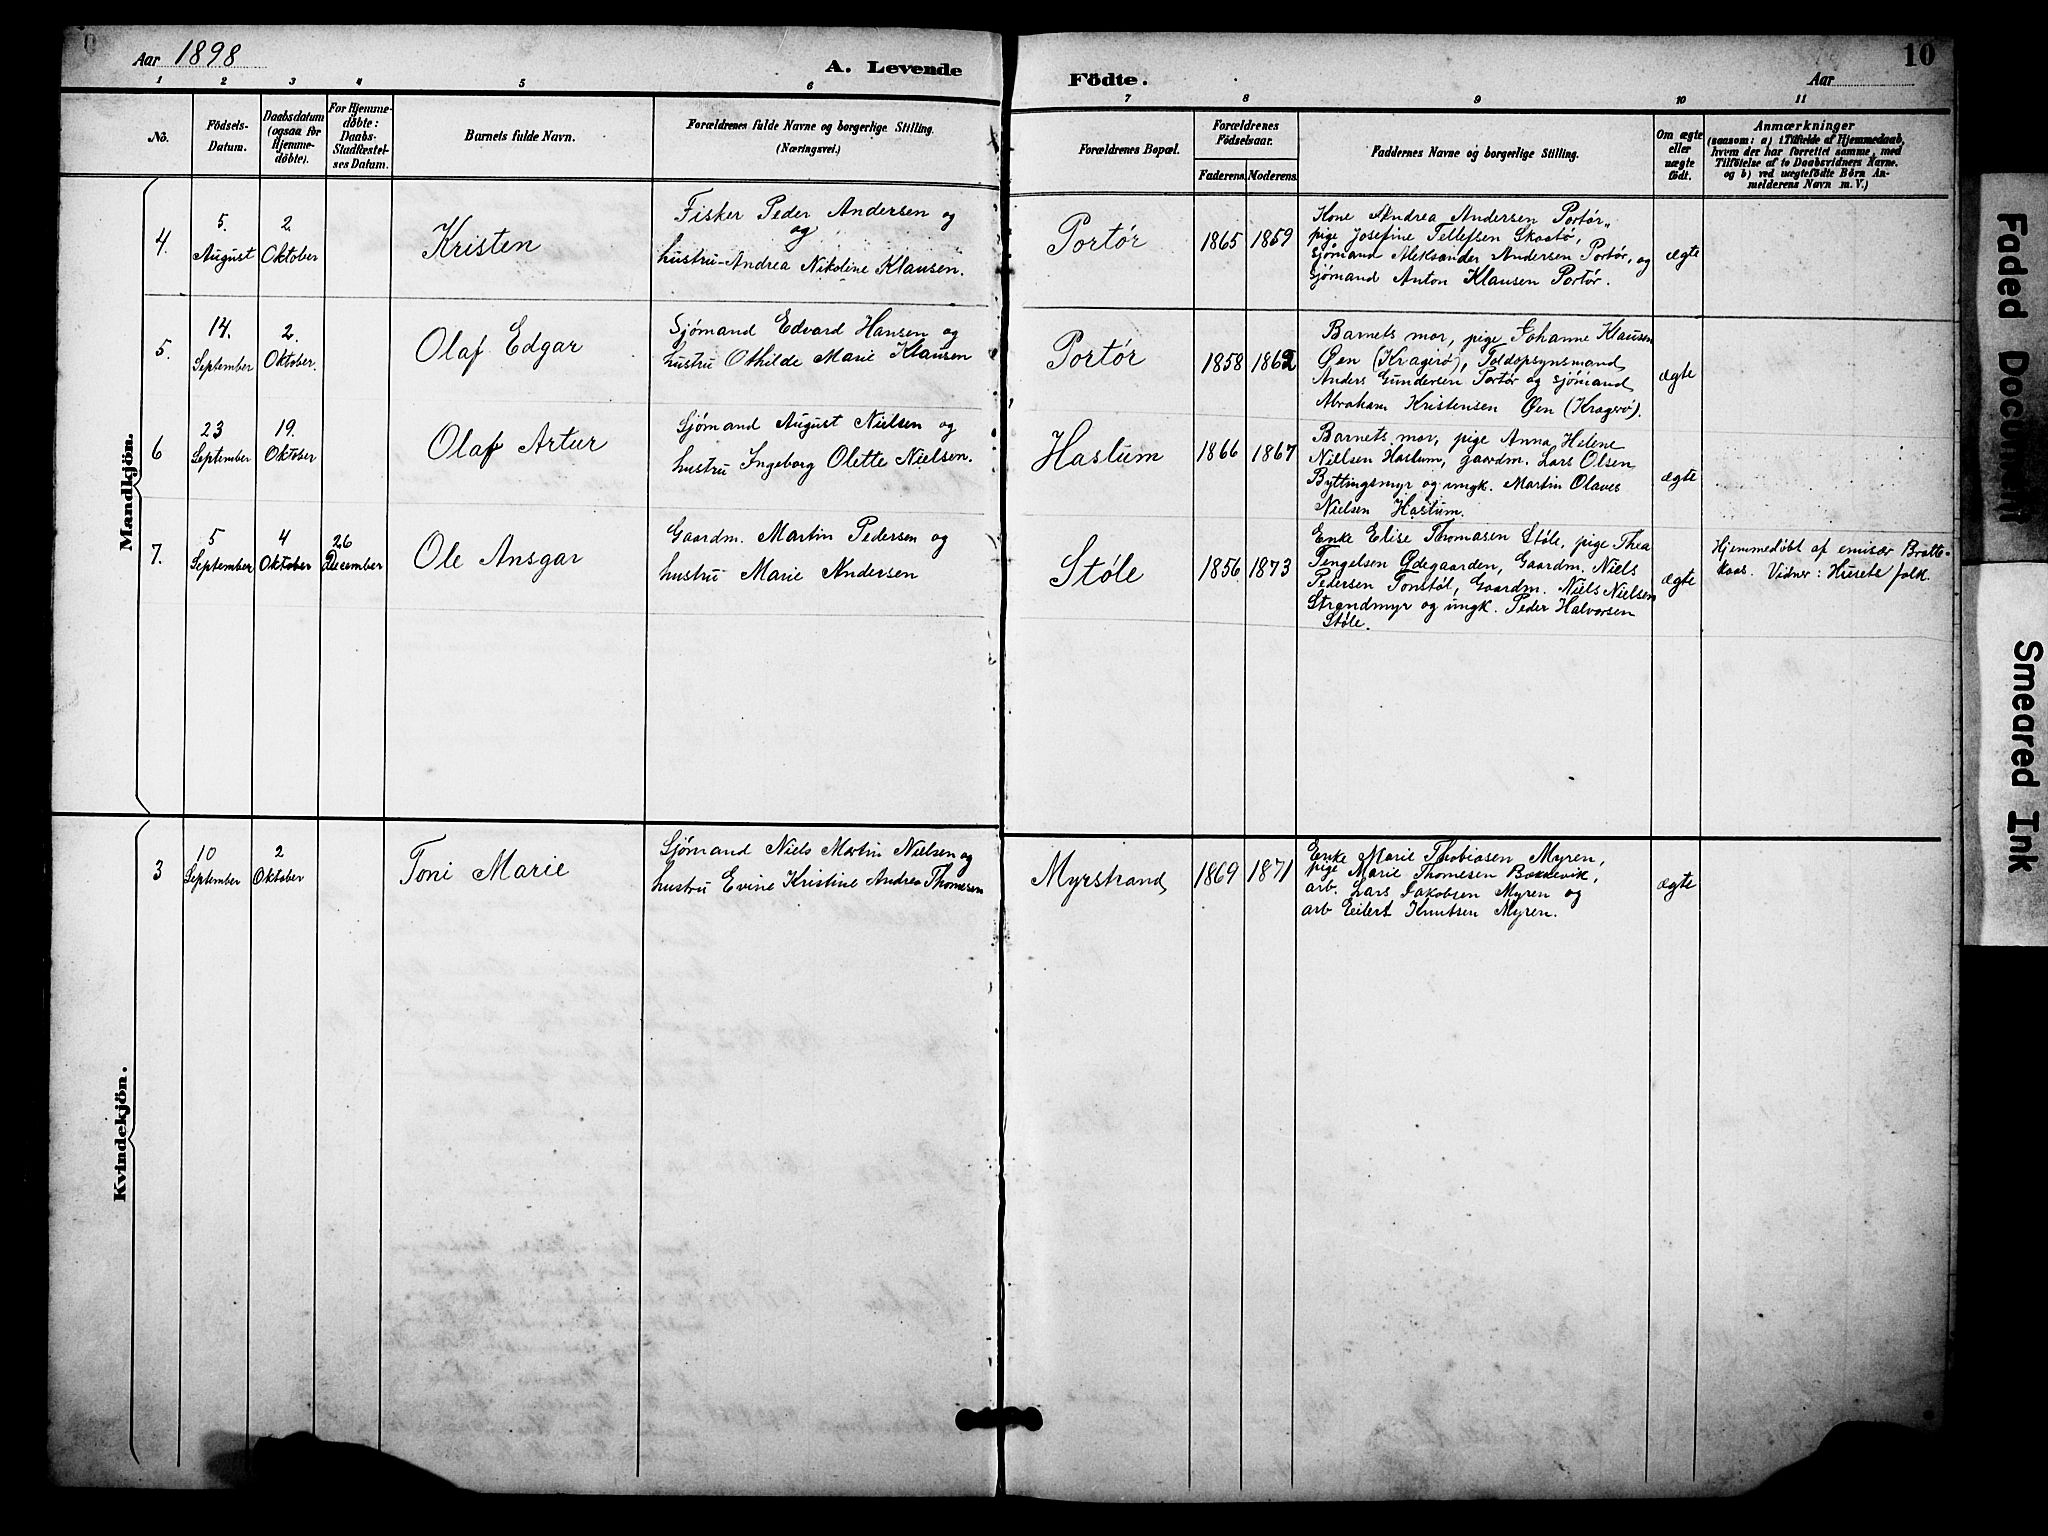 Aar 1898
A. Levende
Födte.
Aar
10
1 2 3 4 5 6 7 8 9 10 11
No.
Födsels-
Datum.
Daabsdatum
(ogsaa for
Hjemme-
döbte).
For Hjemme-
döbte:
Daabs-
Stadfæstel-
ses Datum.
Barnets fulde Navn.
Forældrenes fulde Navne og borgerlige Stilling.
(Næringsvei.)
Forældrenes Bopæl.
Forældrenes
Födselsaar.
Faderens. Moderens.
Faddernes Navne og borgerlige Stilling.
Om ægte
eller
uægte
födt.
Anmærkninger
(saasom: a) i Tilfælde af Hjemmedaab,
hvem der har forrettet samme, med
Tilföielse af to Daabsvidners Navne.
og b) ved uægtefödte Börn An-
melderens Navn m. V.)
Mandkjön.
4.
5.
August
2.
Oktober
Kristen
Fisker Peder Andersen og
og
hustru Andrea Nikoline Klausen.
Portør
1865
1859
Kone Andrea Andersen Portør,
pige Josefine Tellefsen Skaatø,
sjømand Aleksander Andersen Portør, og
sjømand Anton Klausen Portør.
ægte
5.
14.
September
2.
Oktober.
Olaf Edgar
Sjømand Edvard Hansen og
hustru Othilde Marie Klausen
Portør
1858
1862
Barnets mor, pige Johanne Klausen
Øen (Kragerø), Toldopsynsmand
Anders Gundersen Portør og sjømand
Abraham Kristensen Øen (Kragerø).
ægte
6
23
September
19.
Oktober
Olaf Artur
Sjømand August Nielsen og
hustru Ingeborg Olette Nielsen.
Haslum
1866
1867
Barnets mor, pige Anna Helene
Nielsen Haslum, gaardm. Lars Olsen
Byttingsmyr og ungk. Martin Olaves
Nielsen Haslum.
ægte
7.
5
September
4
Oktober
26
December
Ole Ansgar
Gaardm. Martin Pedersen og
hustru Marie Andersen
Støle
1856
1873
Enke Elise Thomasen Støle, pige Thea
Tengelsen Ødegaarden, Gaardm. Niels
Pedersen Tonstøl, Gaardm. Niels Nielsen
Strandmyr og ungk. Peder Halvorsen
Støle.
ægte
Hjemmedøbt af emisær Bratte-
kaas. Vidner: Husets folk.
Kvindekjön.
3
10
September
2
Oktober
Toni Marie
Sjømand Niels Martin Nielsen og
hustru Evine Kristine Andrea Thomesen
Myrstrand
1869
1871
Enke Marie Thobiasen Myren,
pige Marie Thomesen
arb. Lars Jakobsen Myren og
arb Eilert Knutsen Myren.
ægte
Faded Document
Smeared Ink